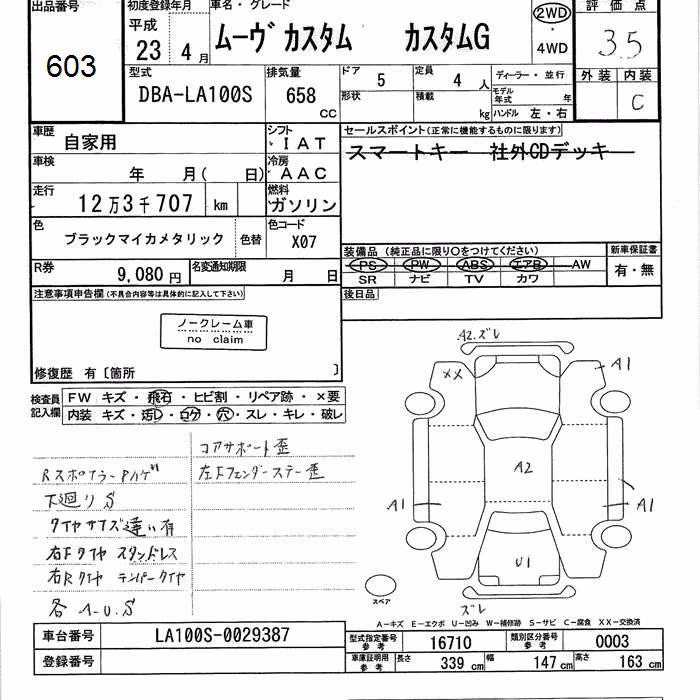 出品番号 初度登録年月 車名・グレード 2WD 評価点
603 平成 23 4月 ムーヴカスタム カスタムG ・ 4WD 3.5
型式 排気量 ドア 5 定員 4 人 ディーラー・並行 外装 内装
DBA-LA100S 658 cc 形状 積載 kg モデル年式 年 C
ハンドル 左・右
車歴 自家用 シフト IAT セールスポイント(正常に機能するものに限ります)
車検 年 月( 日) 冷房 AAC スマートキー 社外CDデッキ
走行 12万3千707 km 燃料 ガソリン
色 ブラックマイカメタリック 色替 色コード X07
装備品(純正品に限り○をつけてください) 新車保証書
R券 9,080円 名変通知期限 月 日 PS PW ABS エアB AW 有・無
SR ナビ TV カワ
注意事項申告欄(不具合内容等は具体的に記入して下さい) 後日品
ノークレーム車
no claim
修復歴 有〔箇所 〕
検査員記入欄 FW キズ・飛石・ヒビ割・リペア跡・×要
内装 キズ・汚レ・コゲ・穴・スレ・キレ・破レ
コアサポート歪
Rスポイラー
左Fフェンダーステー歪
下廻りS
タイヤサイズ違い有
右Fタイヤ スタッドレス
右Rタイヤ テンパータイヤ
各 A・U.S
A2.ズレ
XX A1
A2
A1 A1
U1
スペア ズレ
A-キズ E-エクボ U-凹み W-補修跡 S-サビ C-腐食 XX-交換済
車台番号 LA100S-0029387 型式指定番号 参考 16710 類別区分番号 参考 0003
登録番号 車庫証明用 参考 長さ 339 cm 幅 147 cm 高さ 163 cm